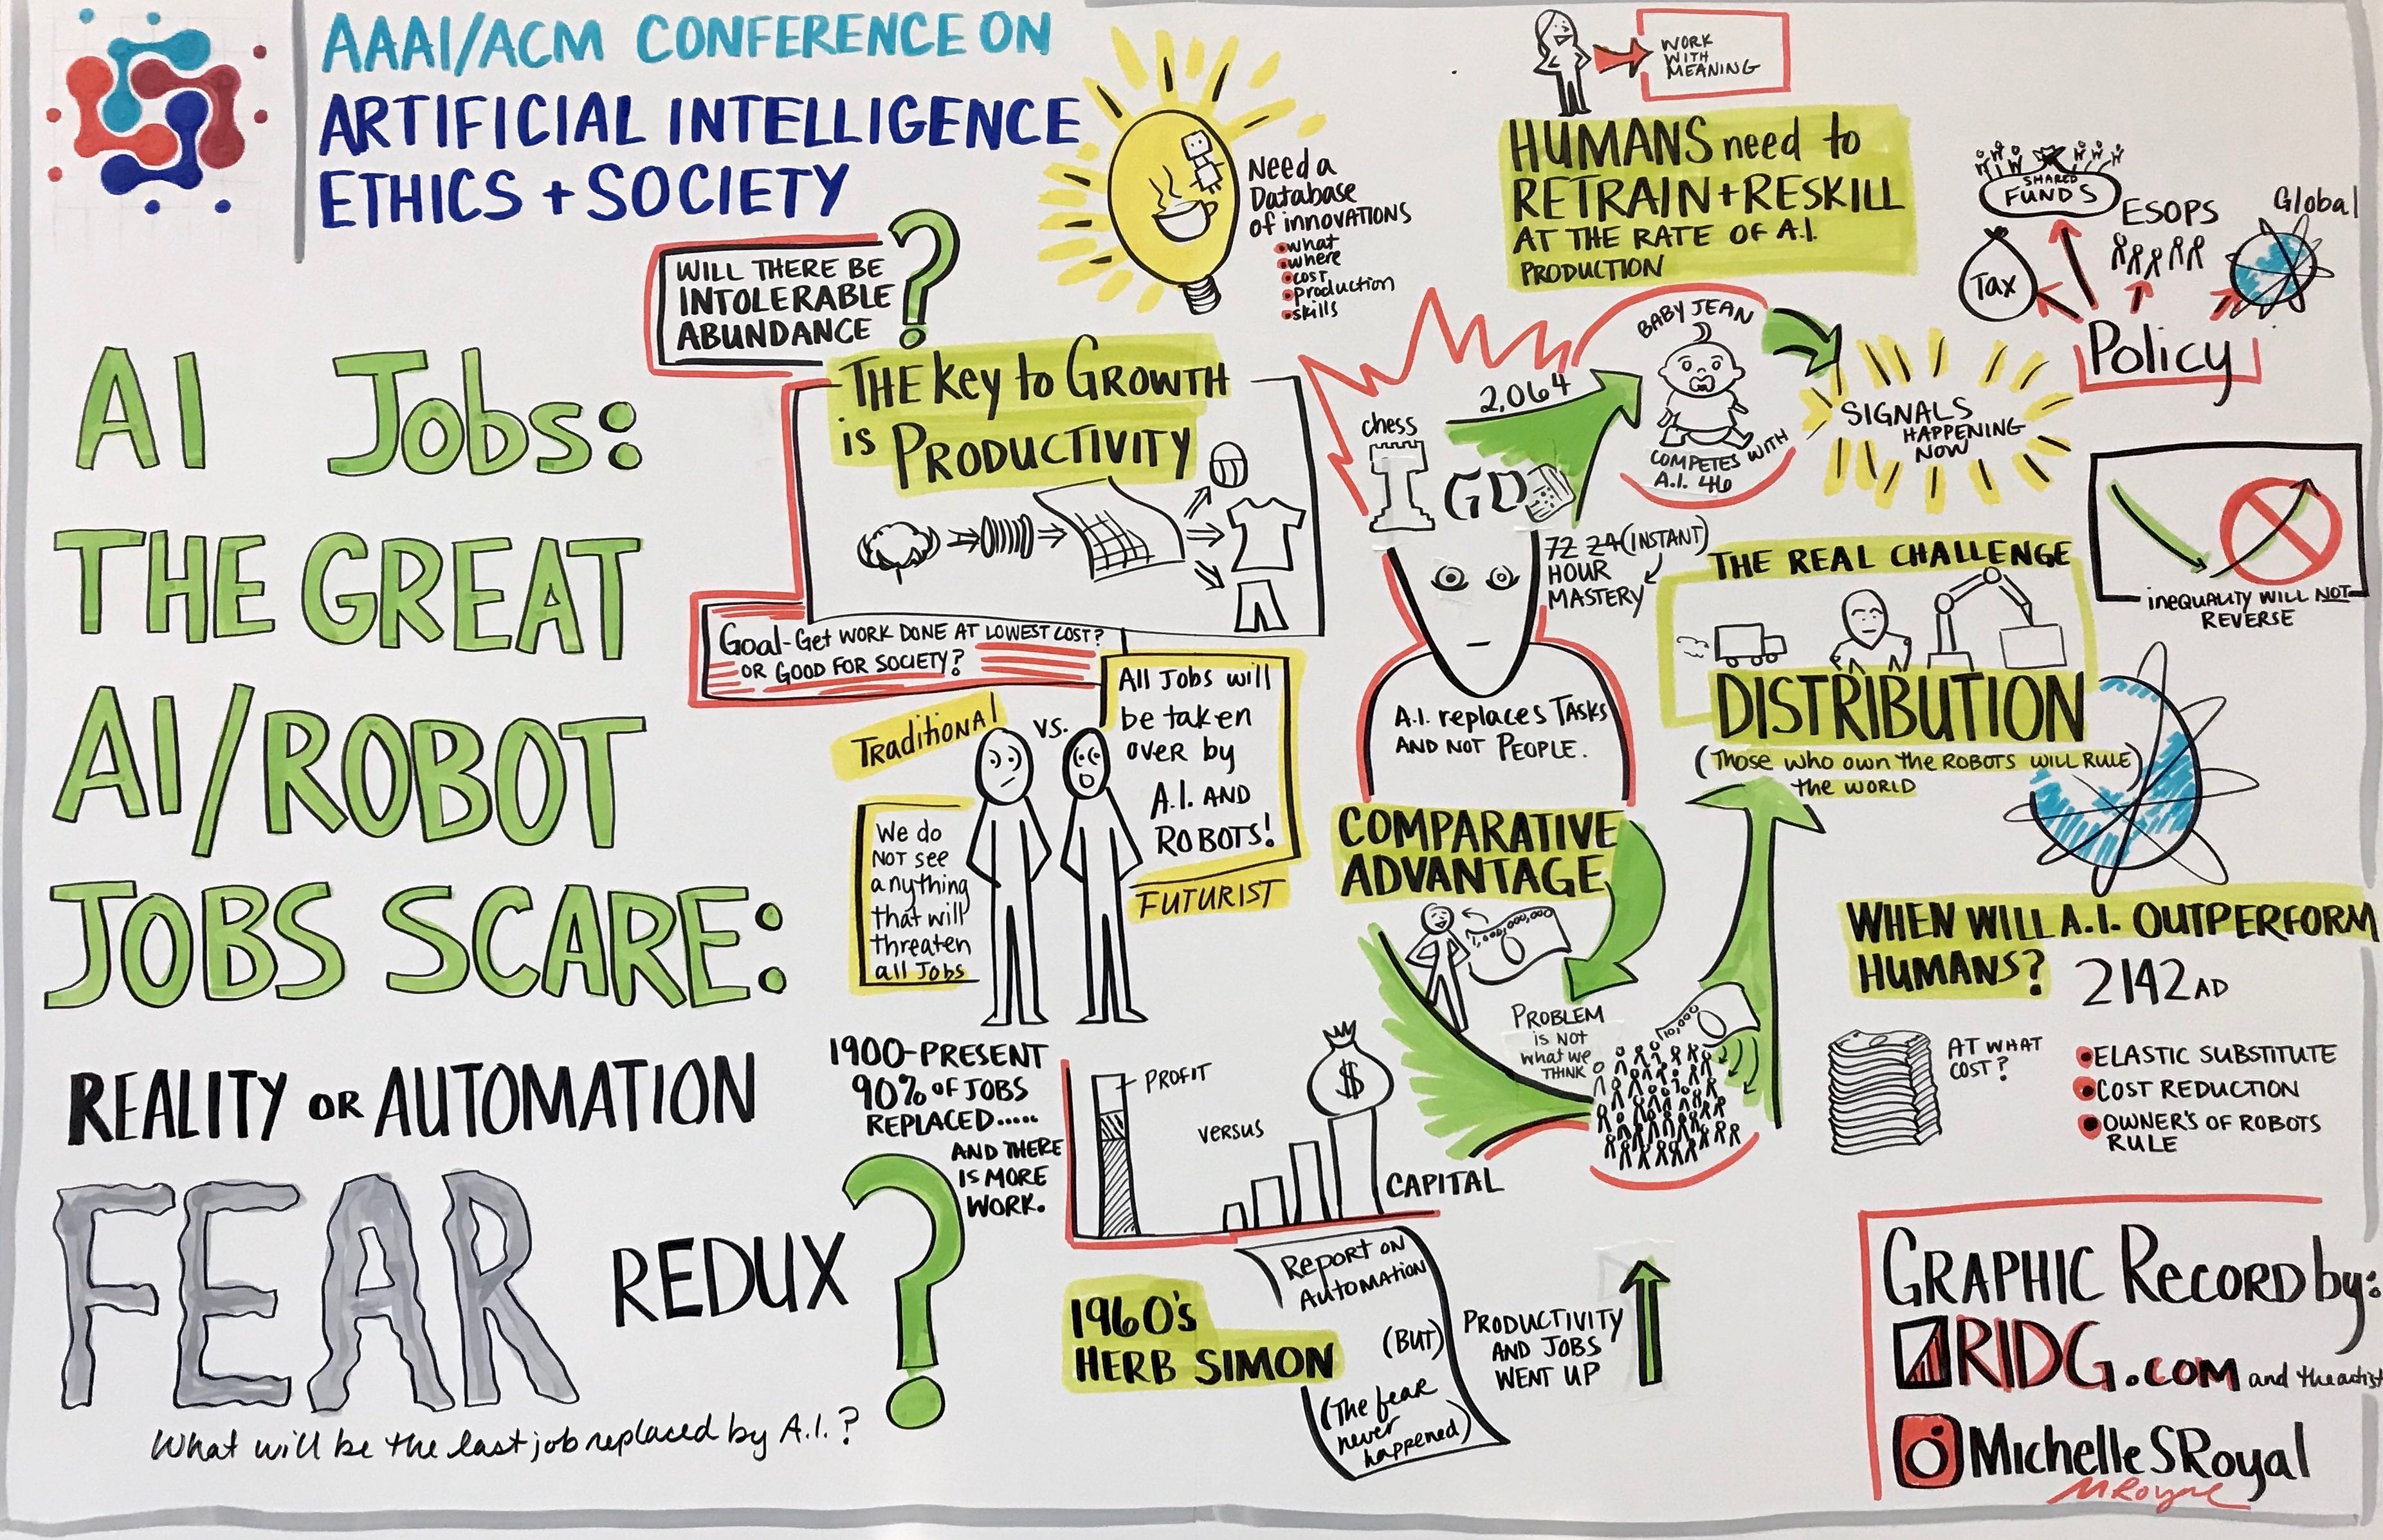 AAAI/ACM CONFERENCE ON
ARTIFICIAL INTELLIGENCE
ETHICS + SOCIETY
AI Jobs:
THE GREAT
AI/ROBOT
JOBS SCARE:
REALITY OR AUTOMATION
FEAR REDUX
?
What will be the last job replaced by A.I.?
WILL THERE BE
INTOLERABLE
ABUNDANCE
?
Need a
Database
of innovations
what
where
cost
production
skills
THE Key to GROWTH
is PRODUCTIVITY
Goal-Get WORK DONE AT LOWEST COST?
OR GOOD FOR SOCIETY?
Traditional
VS.
We do
NOT see
anything
that will
threaten
all Jobs
All Jobs will
be taken
over by
A.I. AND
ROBOTS!
FUTURIST
1900-PRESENT
90% OF JOBS
REPLACED.....
AND THERE
IS MORE
WORK.
PROFIT
VERSUS
$
CAPITAL
1960's
HERB SIMON
Report on
Automation
(BUT)
(The fear
never
happened)
PRODUCTIVITY
AND JOBS
WENT UP
WORK
WITH
MEANING
HUMANS need to
RETRAIN + RESKILL
AT THE RATE OF A.I.
PRODUCTION
chess
GO
2,064
BABY JEAN
COMPETES WITH
A.I. 46
SIGNALS
HAPPENING
NOW
72 24 (INSTANT)
HOUR
MASTERY
A.I. replaces TASKS
AND NOT PEOPLE.
COMPARATIVE
ADVANTAGE
1,000,000
PROBLEM
is NOT
what we
THINK
10,000
SHARED
FUNDS
Tax
ESOPS
Global
Policy
inequality will NOT
REVERSE
THE REAL CHALLENGE
DISTRIBUTION
(Those who own the ROBOTS WILL RULE)
the WORLD
WHEN WILL A.I. OUTPERFORM
HUMANS? 2142 AD
AT WHAT
COST?
ELASTIC SUBSTITUTE
COST REDUCTION
OWNER'S OF ROBOTS
RULE
GRAPHIC RECORD by:
RIDG.COM and the artist
MichelleSRoyal
MRoyal